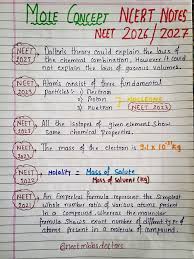 MOLE CONCEPT NCERT NOTES
NEET 2026/2027
NEET 2025 Dalton's theory could explain the laws of
the chemical combination. However it could
not explain the laws of gaseous volumes.
NEET 2023 Atoms consist of three fundamental
particles :- Electron
Proton
Neutron (NEET 2023)
NEET All the isotopes of given element show
same chemical properties.
NEET The mass of electron is 9.1 x 10
NEET Molality = Mass of Solute
Mass of Solvent (kg)
NEET 2021 An Empirical formula represent the simplest
whole number ratio of various atoms present
in a compound whereas the molecular
formula shows exact number of different type of
atoms present in a molecule of compound.